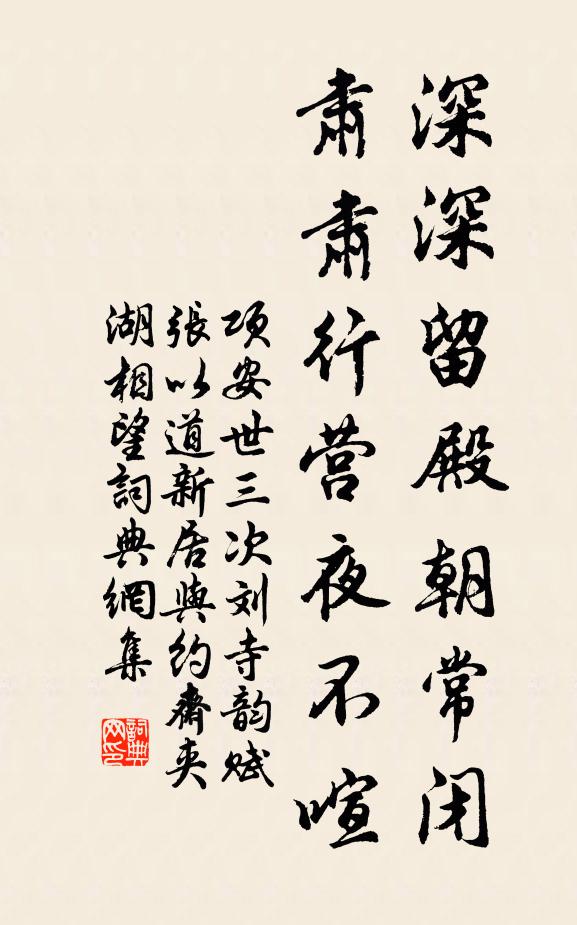 深深留殿朝常闭
肃肃行营夜不喧
项安世三次刘寺韵赋
張以道新居與约齋夹
湖相望詞典網集
詞典网印